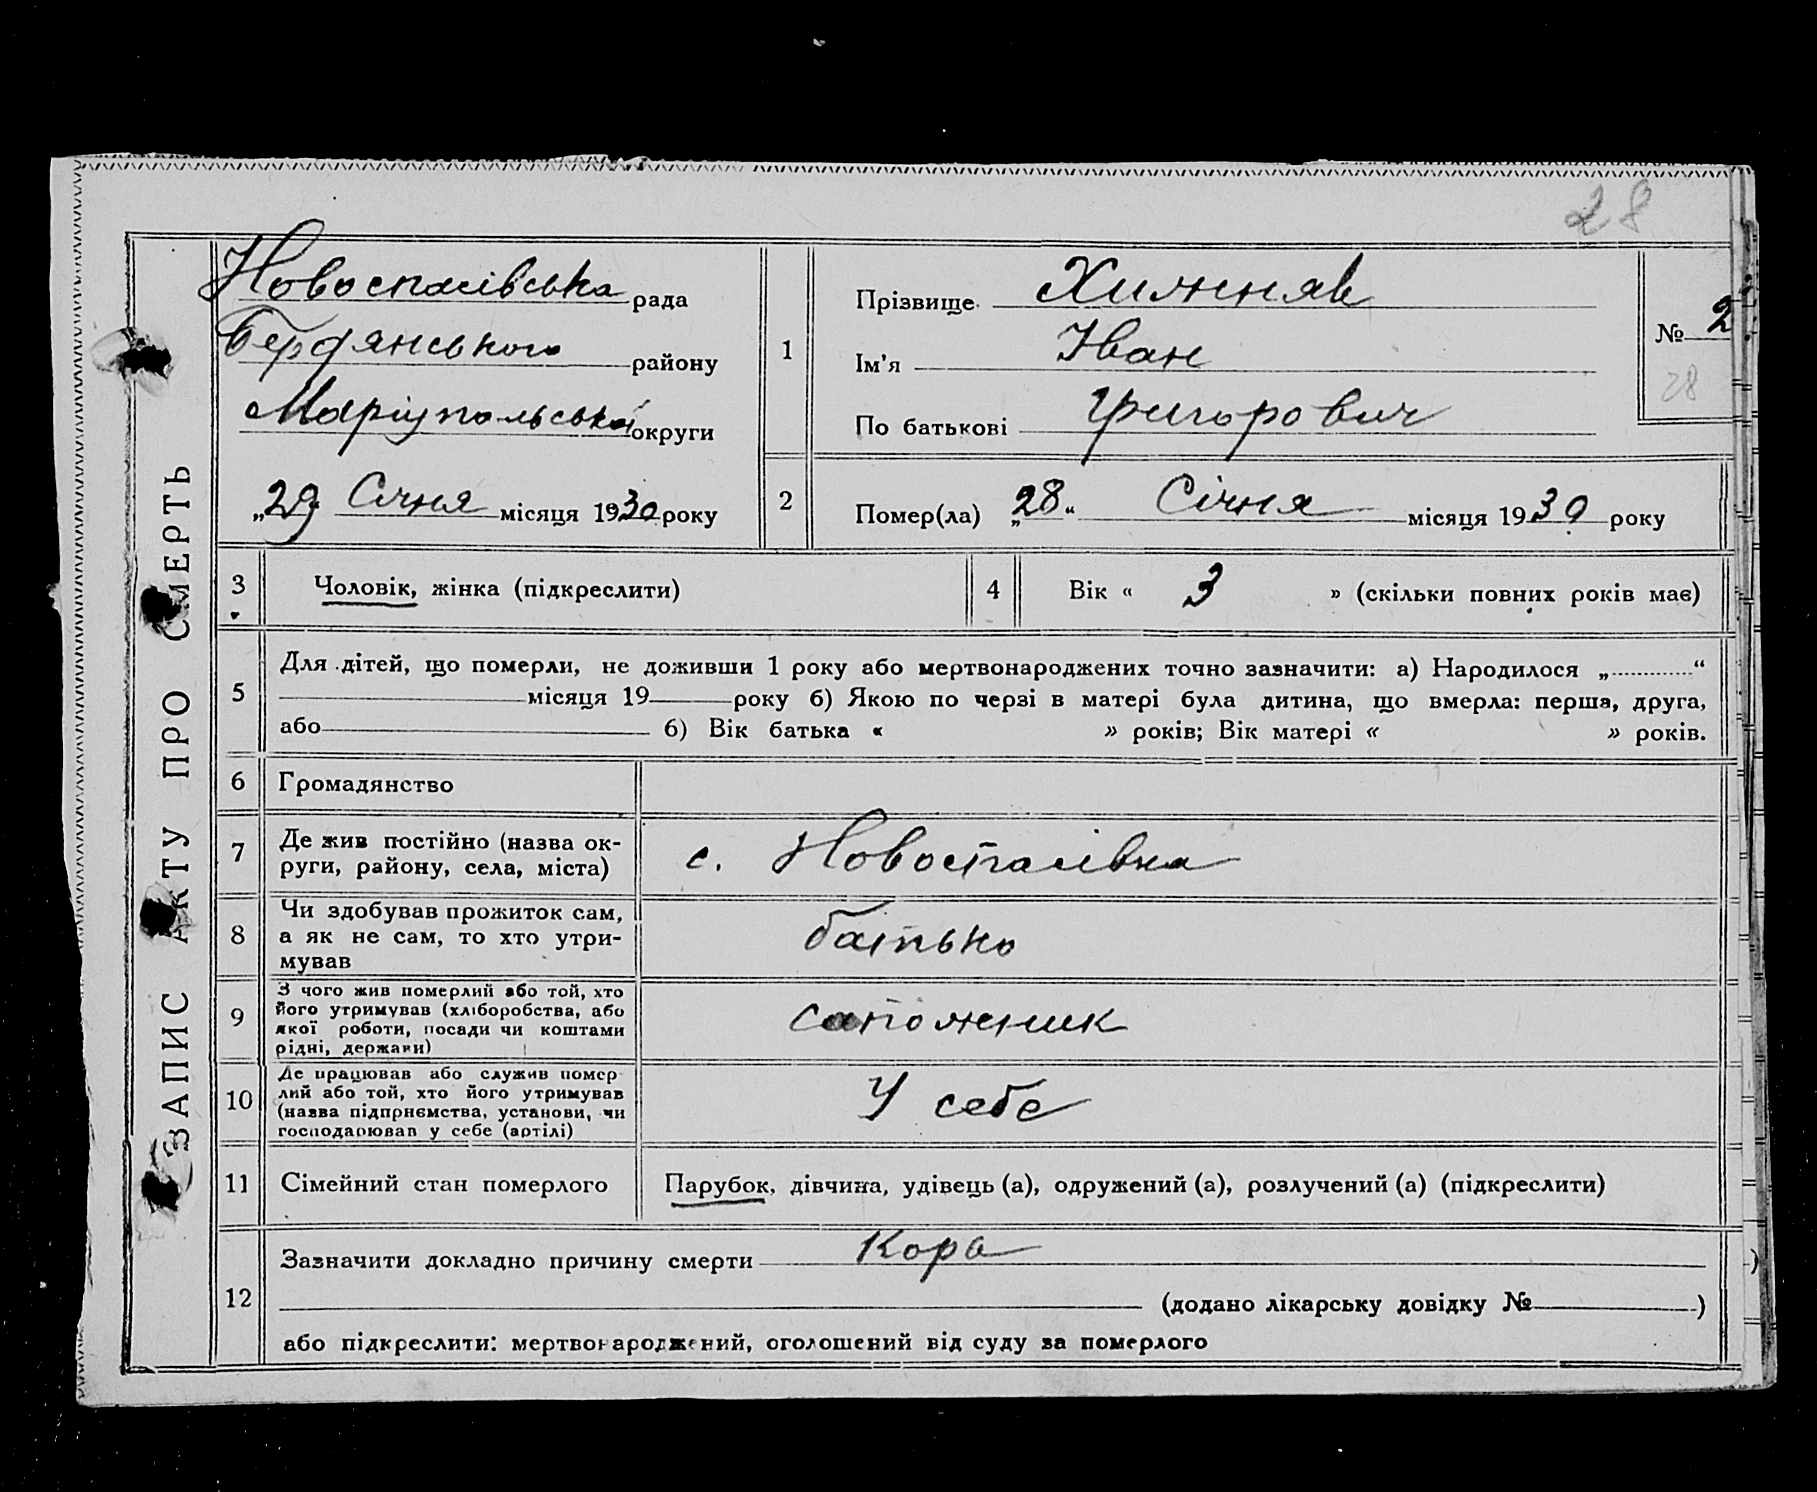 28
ЗАПИС АКТУ ПРО СМЕРТЬ
Новоспасівська рада
Бердянського району
Маріупольської округи
„29 Січня місяця 1930 року
1
Прізвище Хижняк
Ім'я Іван
По батькові Григорович
№ 2
28
2
Помер(ла) „28“ Січня місяця 1930 року
3 Чоловік, жінка (підкреслити)
4 Вік « 3 » (скільки повних років має)
5
Для дітей, що померли, не доживши 1 року або мертвонароджених точно зазначити: а) Народилося „ “
місяця 19 року б) Якою по черзі в матері була дитина, що вмерла: перша, друга,
або б) Вік батька « » років; Вік матері « » років.
6 Громадянство
7
Де жив постійно (назва ок-
руги, району, села, міста)
с. Новоспасівка
8
Чи здобував прожиток сам,
а як не сам, то хто утри-
мував
батько
9
З чого жив померлий або той, хто
його утримував (хліборобства, або
якої роботи, посади чи коштами
рідні, держави)
сапожник
10
Де працював або служив помер-
лий або той, хто його утримував
(назва підприємства, установи, чи
господарював у себе (артілі)
У себе
11 Сімейний стан померлого
Парубок, дівчина, удівець (а), одружений (а), розлучений (а) (підкреслити)
12
Зазначити докладно причину смерти Кора
(додано лікарську довідку № )
або підкреслити: мертвонароджений, оголошений від суду за померлого